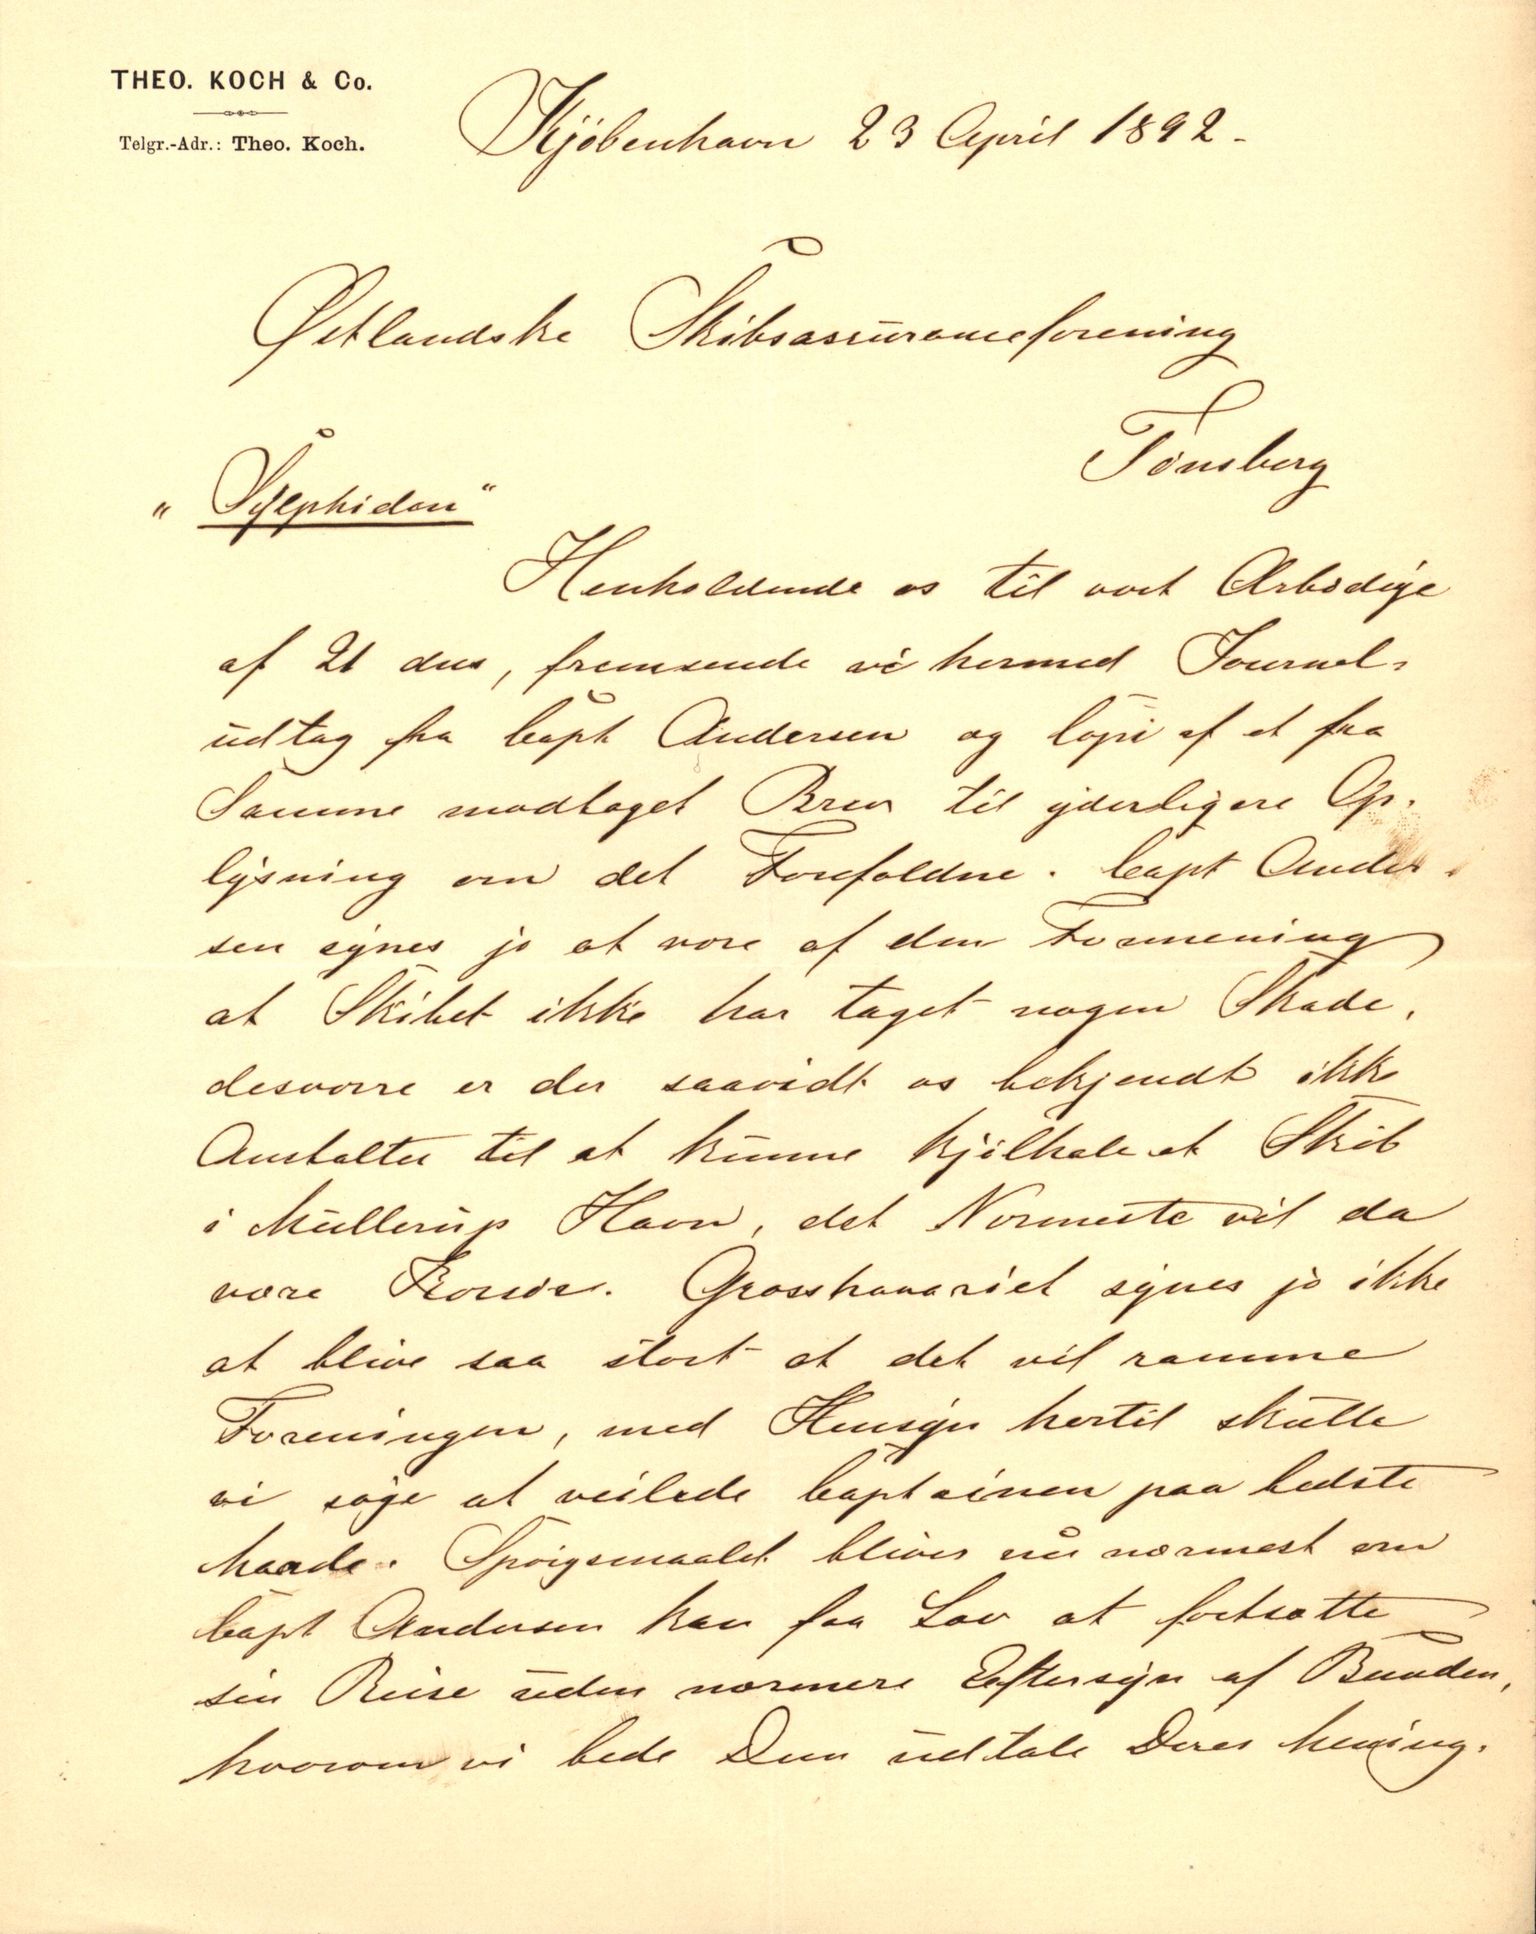 THEO. KOCH & Co.
Telgr.-Adr.: Theo. Koch.
Kjöbenhavn 23 April 1892 -
Østlandske Skibsassuranceforening
Tönsberg
"Sylphiden"
Henholdende os til vort Ærbödige
af 21 dns, fremsende vi hermed Journal-
udtog fra Capt Andersen og Copi af et fra
Samme modtaget Brev til yderligere Op-
lysning om det Forefaldne. Capt Ander-
sen synes jo at være af den Formening
at Skibet ikke har taget nogen Skade,
desværre er der saavidt os bekjendt ikke
Anstalter til at kunne kjölhale et Skib
i Mullerup Havn, det Nærmeste vil da
være Korsör. Grosshavariet synes jo ikke
at blive saa stort at det vil ramme
Foreningen, med Hensyn hertil skulle
vi söge at veilede Captainen paa bedste
Maade. Spörgsmaalet bliver nu nærmest om
Capt Andersen kan faa Lov at fortsætte
sin Reise uden nærmere Eftersyn af Bunden,
hvorom vi bede Dem udtale Deres Mening.